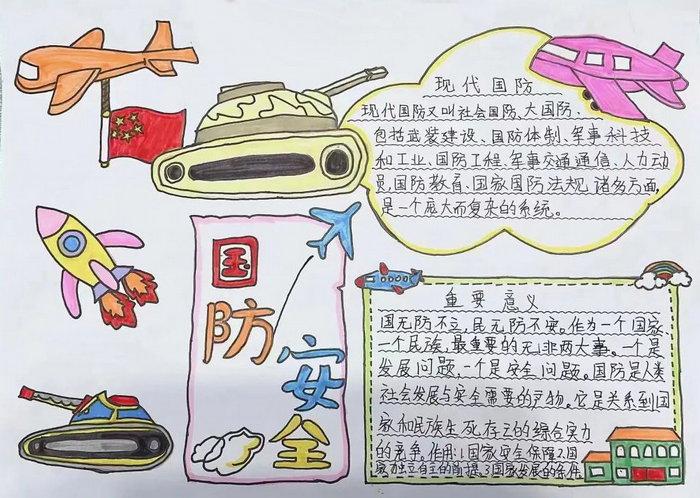 现代国防
现代国防又叫社会国防、大国防、
包括武装建设、国防体制、军事科技
和工业、国防工程、军事交通通信、人力动
员,国防教育、国家国防法规,诸多方面,
是一个庞大而复杂的系统。
国防安全
重要意义
国无防不立,民无防不安。作为一个国家、
一个民族,最重要的无非两大事。一个是
发展问题,一个是安全问题。国防是人类
社会发展与安全需要的产物。它是关系到国
家和民族生死存亡的综合实力
的竞争。作用:1国家安全保障2.国
家独立自主的前提.3国家发展的条件